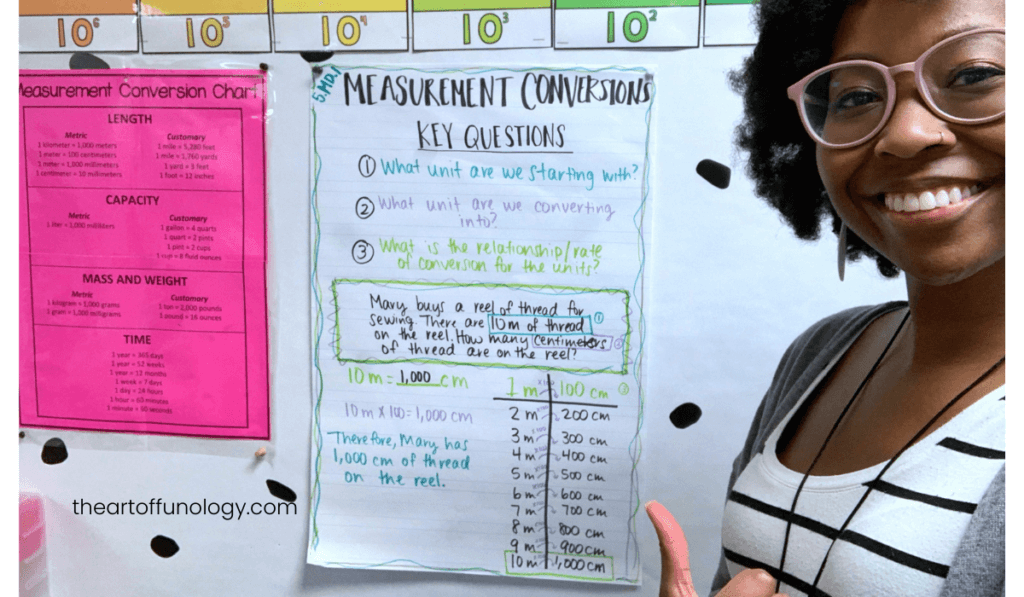 10⁶ 10⁵ 10⁴ 10³ 10²
Measurement Conversion Chart
LENGTH
Metric
1 kilometer = 1,000 meters
1 meter = 100 centimeters
1 meter = 1,000 millimeters
1 centimeter = 10 millimeters
Customary
1 mile = 5,280 feet
1 mile = 1,760 yards
1 yard = 3 feet
1 foot = 12 inches
CAPACITY
Metric
1 liter = 1,000 milliliters
Customary
1 gallon = 4 quarts
1 quart = 2 pints
1 pint = 2 cups
1 cup = 8 fluid ounces
MASS AND WEIGHT
Metric
1 kilogram = 1,000 grams
1 gram = 1,000 milligrams
Customary
1 ton = 2,000 pounds
1 pound = 16 ounces
TIME
1 year = 365 days
1 year = 52 weeks
1 year = 12 months
1 week = 7 days
1 day = 24 hours
1 hour = 60 minutes
1 minute = 60 seconds
5.MD.1
MEASUREMENT CONVERSIONS
KEY QUESTIONS
① What unit are we starting with?
② What unit are we converting
into?
③ What is the relationship/rate
of conversion for the units?
Mary buys a reel of thread for
sewing. There are 10m of thread ①
on the reel. How many centimeters ②
of thread are on the reel?
10 m = 1,000 cm
10 m x 100 = 1,000 cm
Therefore, Mary has
1,000 cm of thread
on the reel.
1 m 100 cm ③
2 m 200 cm
3 m 300 cm
4 m 400 cm
5 m 500 cm
6 m 600 cm
7 m 700 cm
8 m 800 cm
9 m 900 cm
10 m 1,000 cm
theartoffunology.com